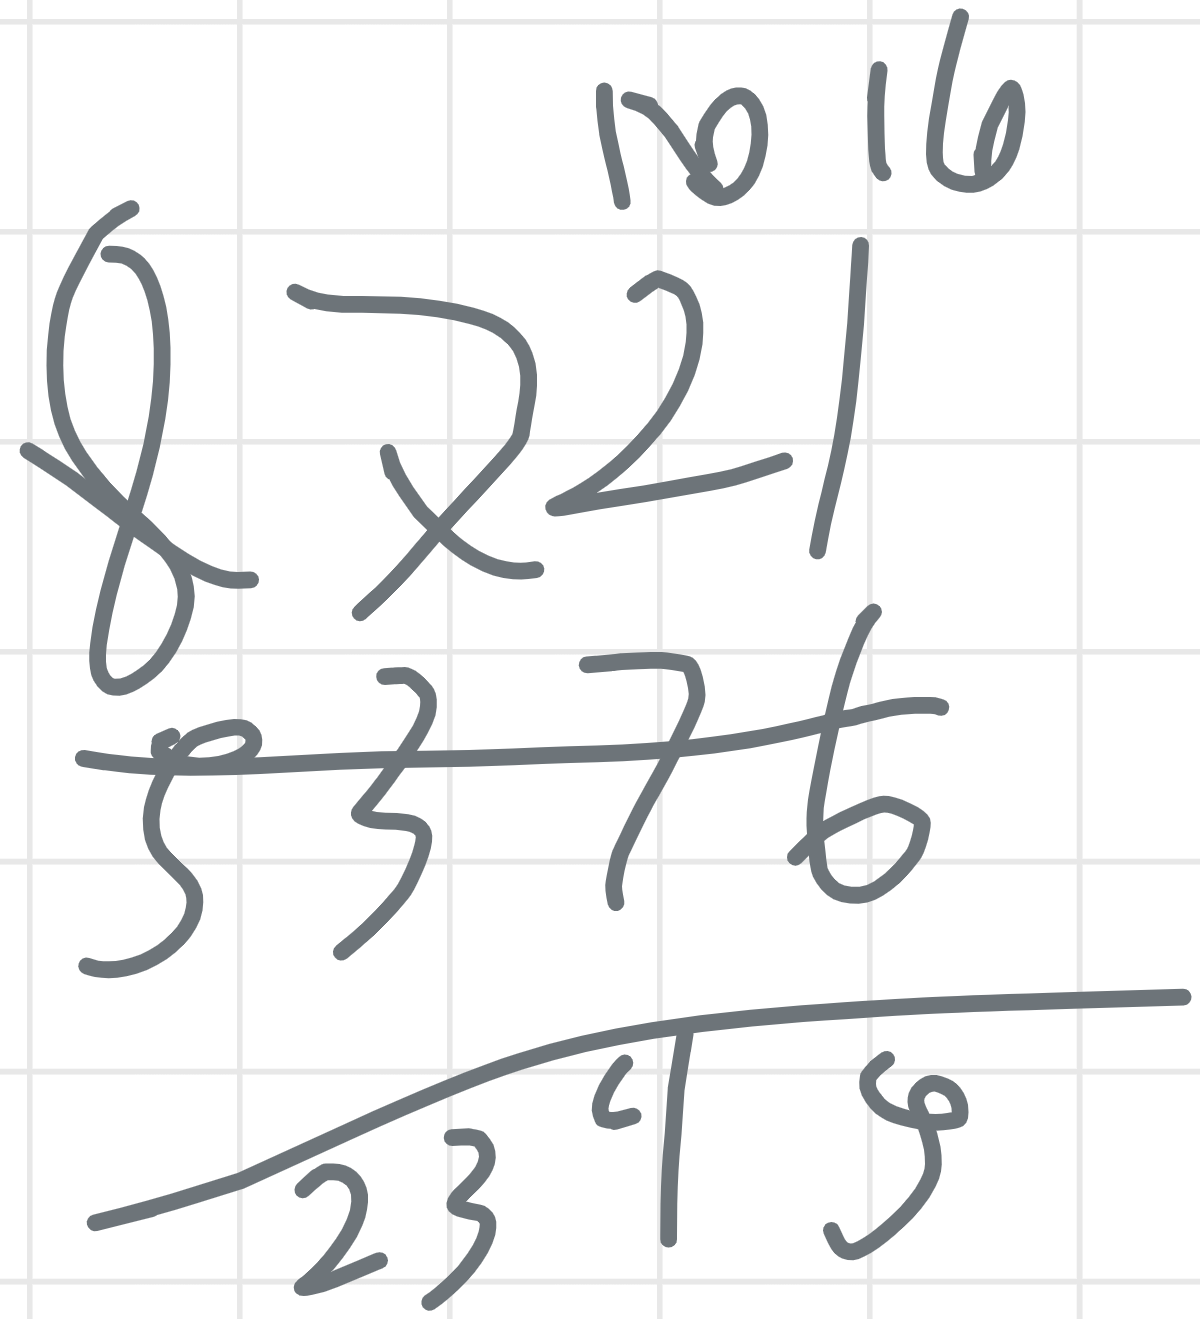 10 16
8721
5376
2345